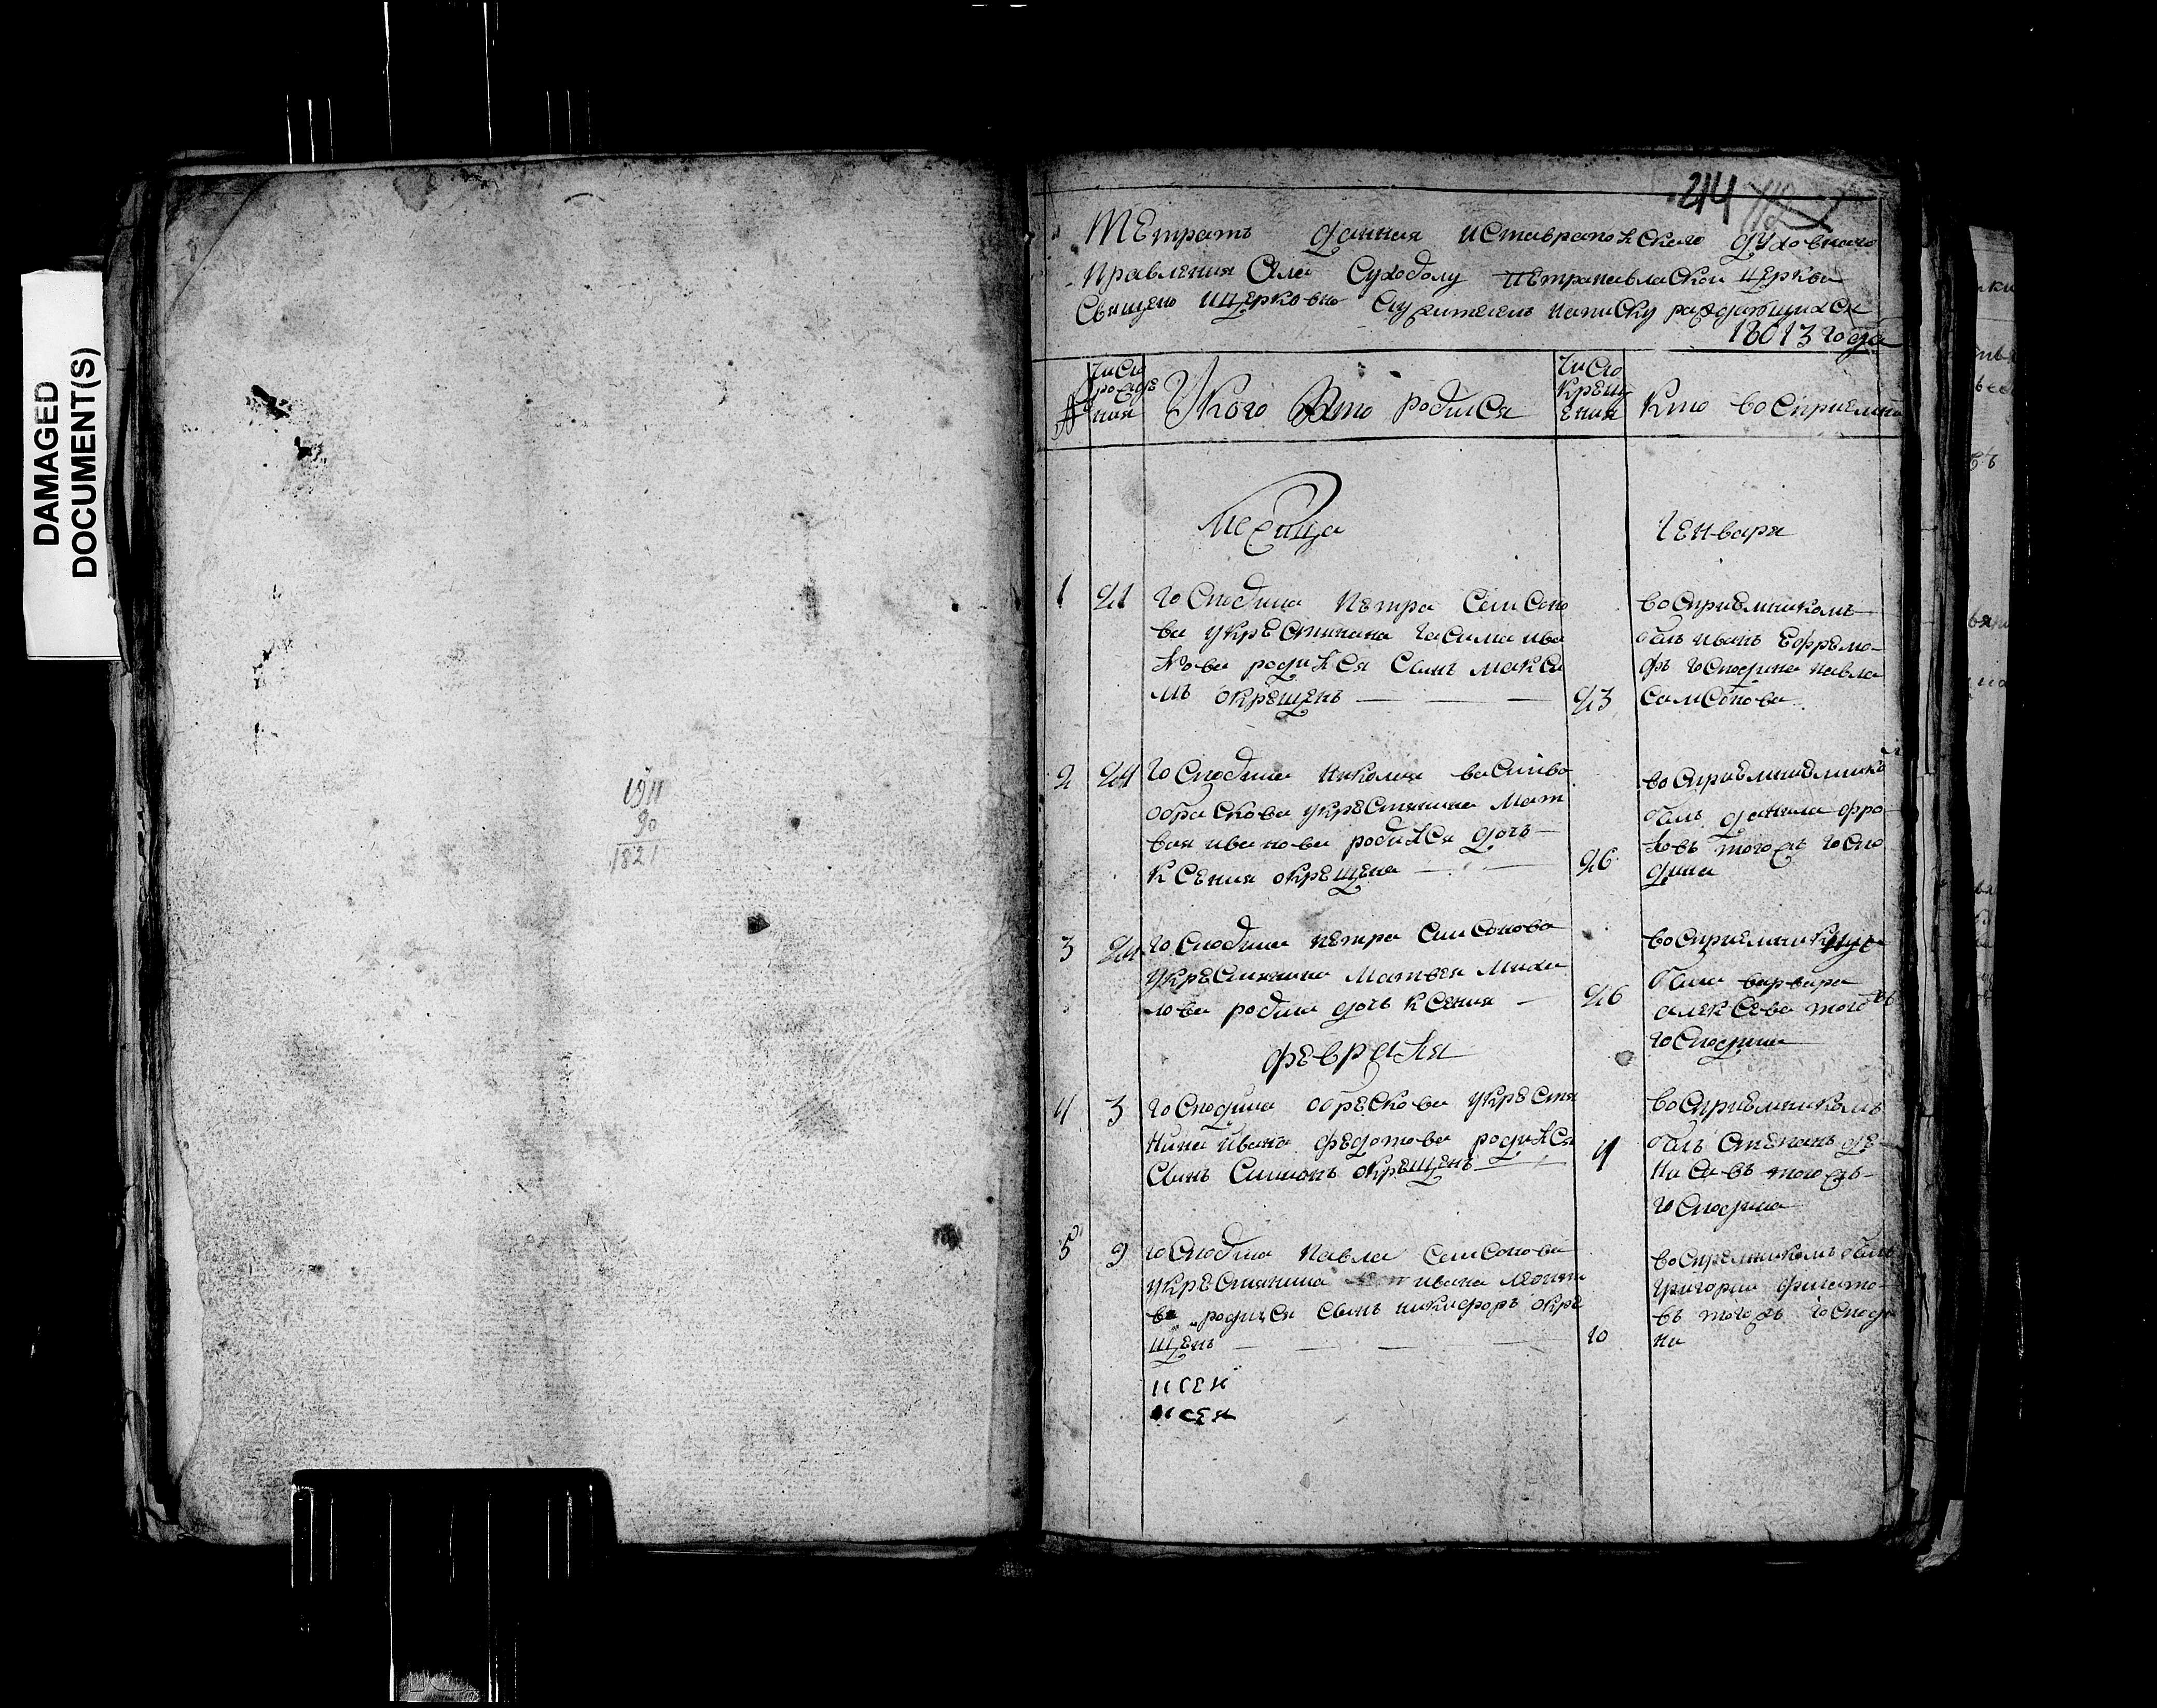 DAMAGED
DOCUMENT(S)
1911
90
1821
214
Тетрать данная иставрополскаго духовнаго
правления Села Суходолу петропавлаской церкви
Священо ицерковно Служителемъ написку раждающихся
18013 года
№
число рожде ния
У кого Кто родился
число крещ ения
Кто восприемни
месяца
Генваря
1 21 господина Петра Самсоно
ва укрестянина гасима ива
нова родился Сынъ макси
мъ окрещенъ 23
восприемникомъ
былъ иванъ Ефремо
фъ господина павла
Самсонова
2 24 господина николая василва
обраскова укрестянина Мат
вая иванова родился дочъ
ксения окрещена 26
былъ данила фро
ловъ тогожъ госпо
дина
3 24 господина петра Самсонова
укрестянина Матвея Михаи
лова родила дочъ ксения 26
была варвара
алексева тогожъ
господина
февраля
4 3 господина обрескова укрестя
нина Ивана федотова родился
Сынъ Симионъ окрещенъ 4
восприемникомъ
былъ Степанъ де
нисавъ тогожъ
господина
5 9 господина Павла Самсонова
укрестянина ивана
ва родился Сынъ никифоръ окре
щенъ 10
воспремникомъ былъ
григорий филато
въ тогожъ господи
на